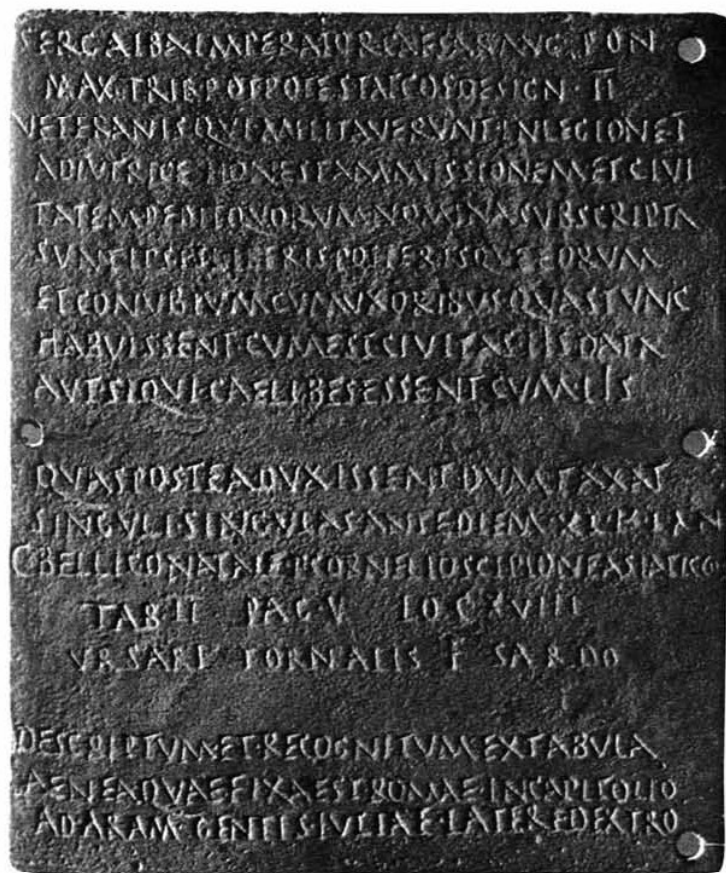 SER GALBA IMPERATOR CAESAR AVG PON
MAX TRIB POT POTESTAT COS DESIGN II
VETERANIS QVI MILITAVERVNT IN LEGIONE I
ADIVTRICE HONESTAM MISSIONEM ET CIVI
TATEM DEDIT QVORVM NOMINA SVBSCRIPTA
SVNT IPSIS LIBERIS POSTERISQVE EORVM
ET CONVBIVM CVM VXORIBVS QVAS TVNC
HABVISSENT CVM EST CIVITAS IIS DATA
AVT SI QVI CAELIBES ESSENT CVM IIS
QVAS POSTEA DVXISSENT DVM TAXAT
SINGVLI SINGVLAS ANTE DIEM XI K IAN
C BELLICO NATALE P CORNELIO SCIPIONE ASIATICO COS
TAB II PAG V LOC XVIIII
VRSARI TORNALIS F SARDO
DESCRIPTVM ET RECOGNITVM EX TABVLA
AENEA QVAE FIXA EST ROMAE IN CAPITOLIO
AD ARAM GENTIS IVLIAE LATERE DEXTRO